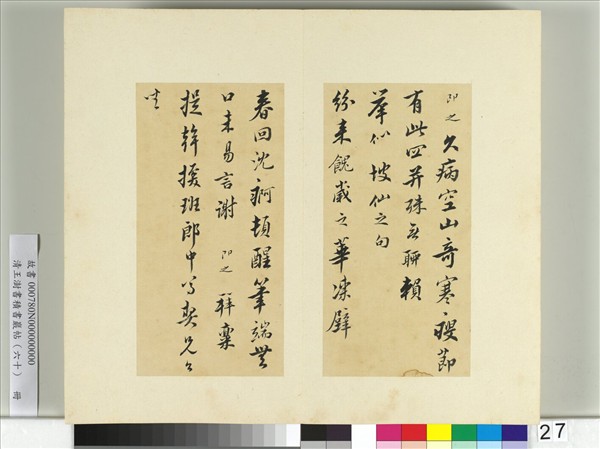 即之久病空山奇寒嫚節
有此四并殊無聊賴
筆似坡仙之句
紛来餽歲之華凍壁
春回沈痾頓醒筆端無
口未易言謝即之拜稟
提幹援班郎中尊契兄
故書000780N000000000
清王澍書積書巖帖(六十) 冊
27